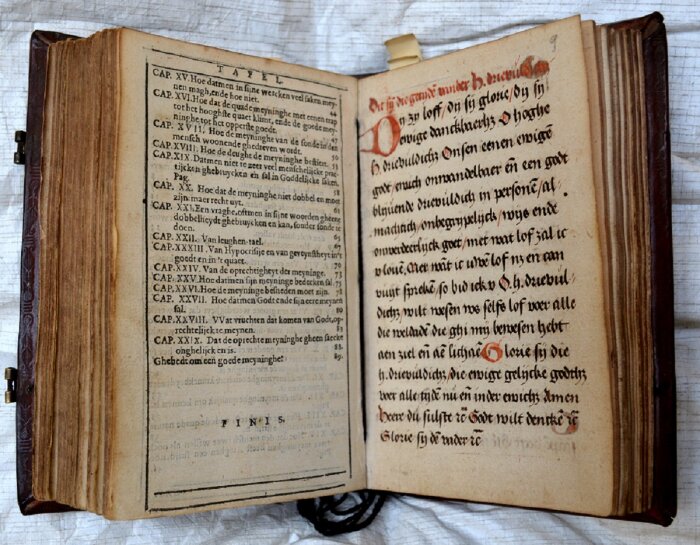 TAFEL.
CAP. XV. Hoe datmen in sijne wercken veel saken mey-
nen magh, ende hoe niet. 44
CAP. XVI. Hoe dat de quade meyninghe met eenen trap
tot het hooghste quaet klimt, ende de goede mey-
ninghe tot het opperste goedt. 47
CAP. XVII. Hoe de meyninghe van de sonde in den
mensch woonende ghedreven wordt. 50
CAP. XVIII. Hoe de deughe de meyninghe bestiert.
CAP. XIX. Datmen niet te zeer veel menschelijcke prac-
tijcken ghebruycken en sal in Goddelijcke saken.
Pag.
CAP. XX. Hoe dat de meyninghe niet dobbel en moet
zijn maer recht uyt. 58
CAP. XXI. Een vraghe, oftmen in sijne woorden gheene
dobbelheydt ghebruycken en kan, sonder sonde te
doen. 63
CAP. XXII. Van leughen-tael. 65
CAP. XXXIII. Van Hypocrisije en van geveynstheyt in't
goedt en in't quaet. 70
CAP. XXIV. Van de oprechtigheyt der meyninge. 73
CAP. XXV. Hoe datmen sijn meyninge bedecken sal. 75
CAP. XXVI. Hoe de meyninge besneden moet zijn. 78
CAP. XXVII. Hoe datmen Godt ende sijn eere meynen
sal. 80
CAP. XXVIII. VVat vruchten dat komen van Godt op-
rechtelijck te meynen. 83
CAP. XXIX. Dat de oprechte meyninghe gheen saecke
onghelijck en is. 88.
Ghebedt om een goede meyninghe. 89.
FINIS.
9
H. drievuldich
On zy loff / dy sy glorie / dy sy
ewige danckbaerhz O hoghe
h drievuldichz Onsen eenen ewigen
godt / onwandelbaer en een godt
blijvende drievuldich in personen / al,
machtich, onbegrypelyck, wijs ende
goet / met wat lof zal ic
v loven, Mer want ic lof en can
sprekē / so bid ick v O h. drievul,
dichz wilt wesen selfs lof voer alle
die weldade die ghi my bewesen hebt
aen ziel en Glorie sy die
h. drievuldichz, die ewige gelijcke godthz
voer alle nu en inder ewichz Amen
Heere Godt wilt
Glorie sy dē vader rē